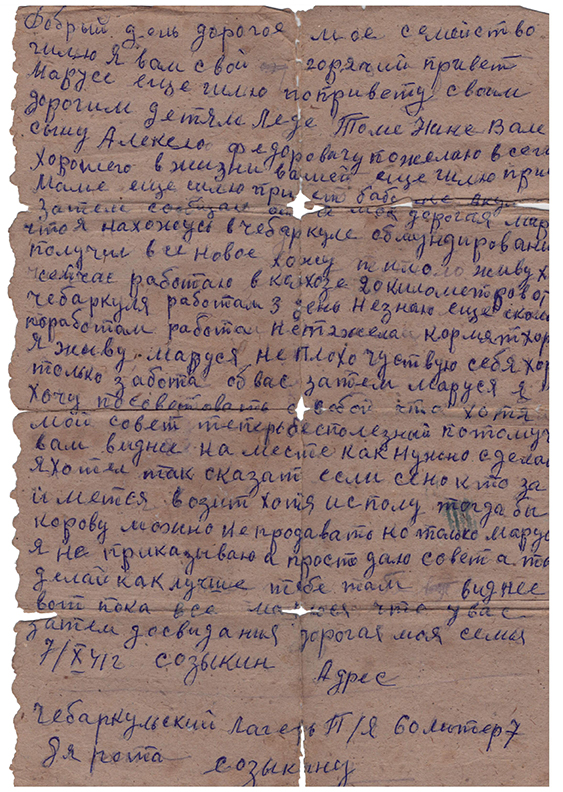 Добрый день дорогое мое семейство
шлю Я вам свой горячий привет
Марусе еще шлю по привету своим
дорогим детям Леде Томе Нине Вале
сыну Алексею Федоровичу пожелаю всего
Хорошего в жизни вашей еще шлю при
Маме еще шлю привет бабе
Затем сообщаю моя дорогая Мару
что я нахожусь в чебаркуле обмундировани
получил все новое хожу тепло живу х
сейчас работаю в колхозе 20 километров от
чебаркуля работам 3 день Незнаю еще сколь
поработам работа нетяжелая кормят хор
Я жыву Маруся не плохо чуствую себя хор
только забота об вас затем Маруся Я
Хочу посоветовать с тобой что хотя
мой совет теперь бесполезный потомуч
вам виднее на месте как нужно сдела
Я хотел так сказат если сено кто за
имется возит хотя исполу тогда бы
корову можно не продавать но только Марус
Я не приказываю а просто даю совет а ты
делай как лучше тебе там виднее
вот пока все что у вас
затем досвидання дорогая моя семия
7/XII 41г созыкин
Адрес
Чебаркульский Лагерь П/Я 60 литер 7
8я рота созыкину